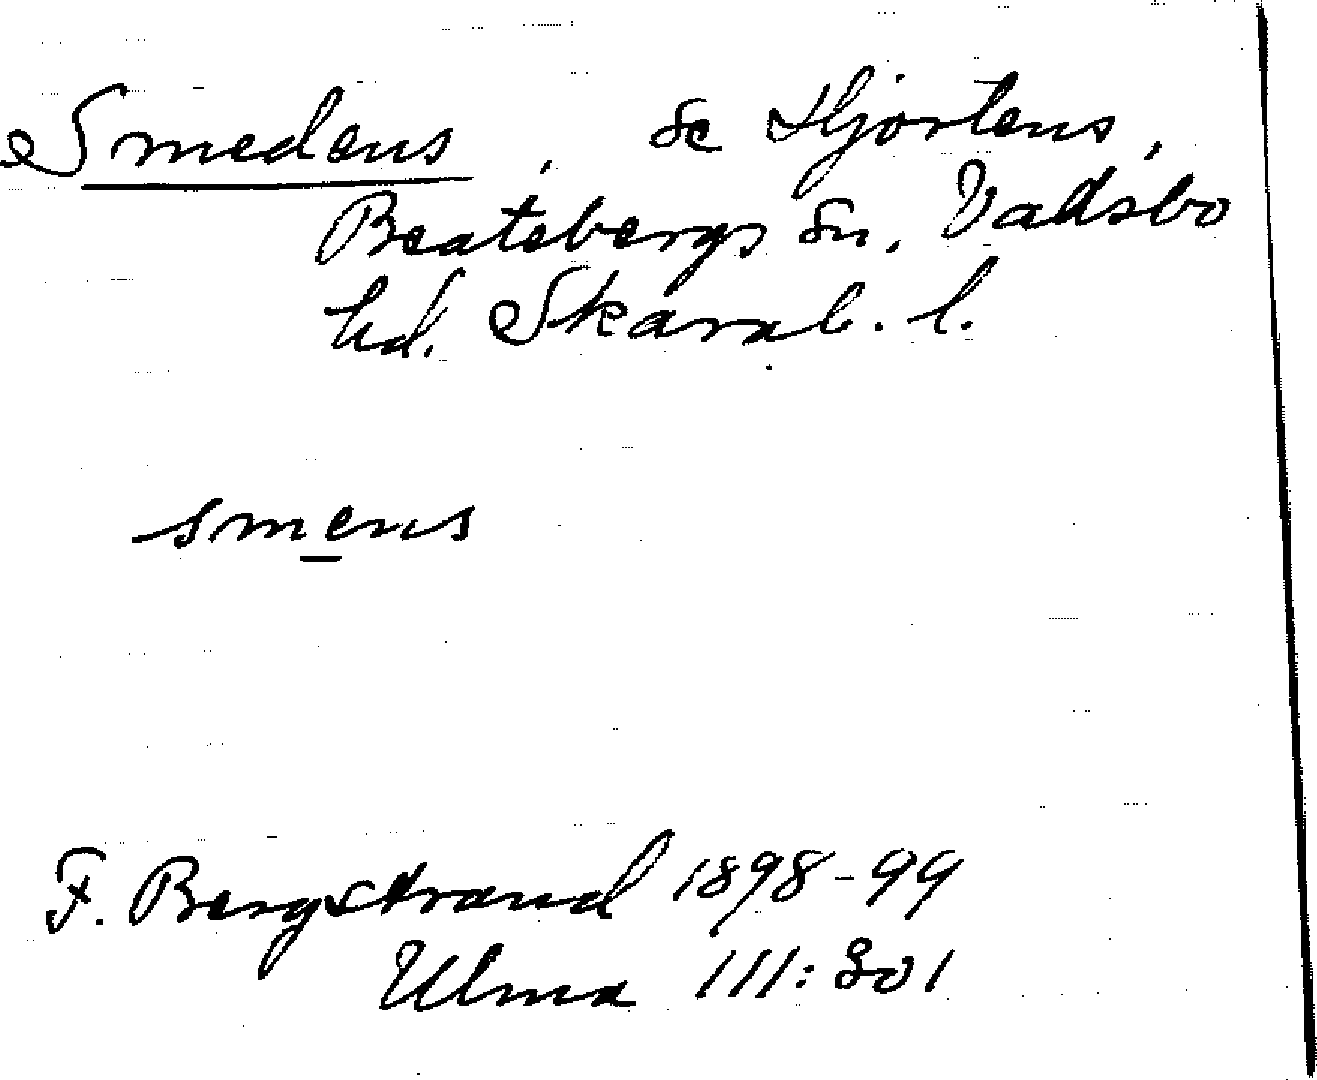 Smedens, se Hjortens,
Beatebergs sn, Vadsbo
hd. Skarab. l.
smens
F. Bergstrand 1898-99
Ulma 111:801